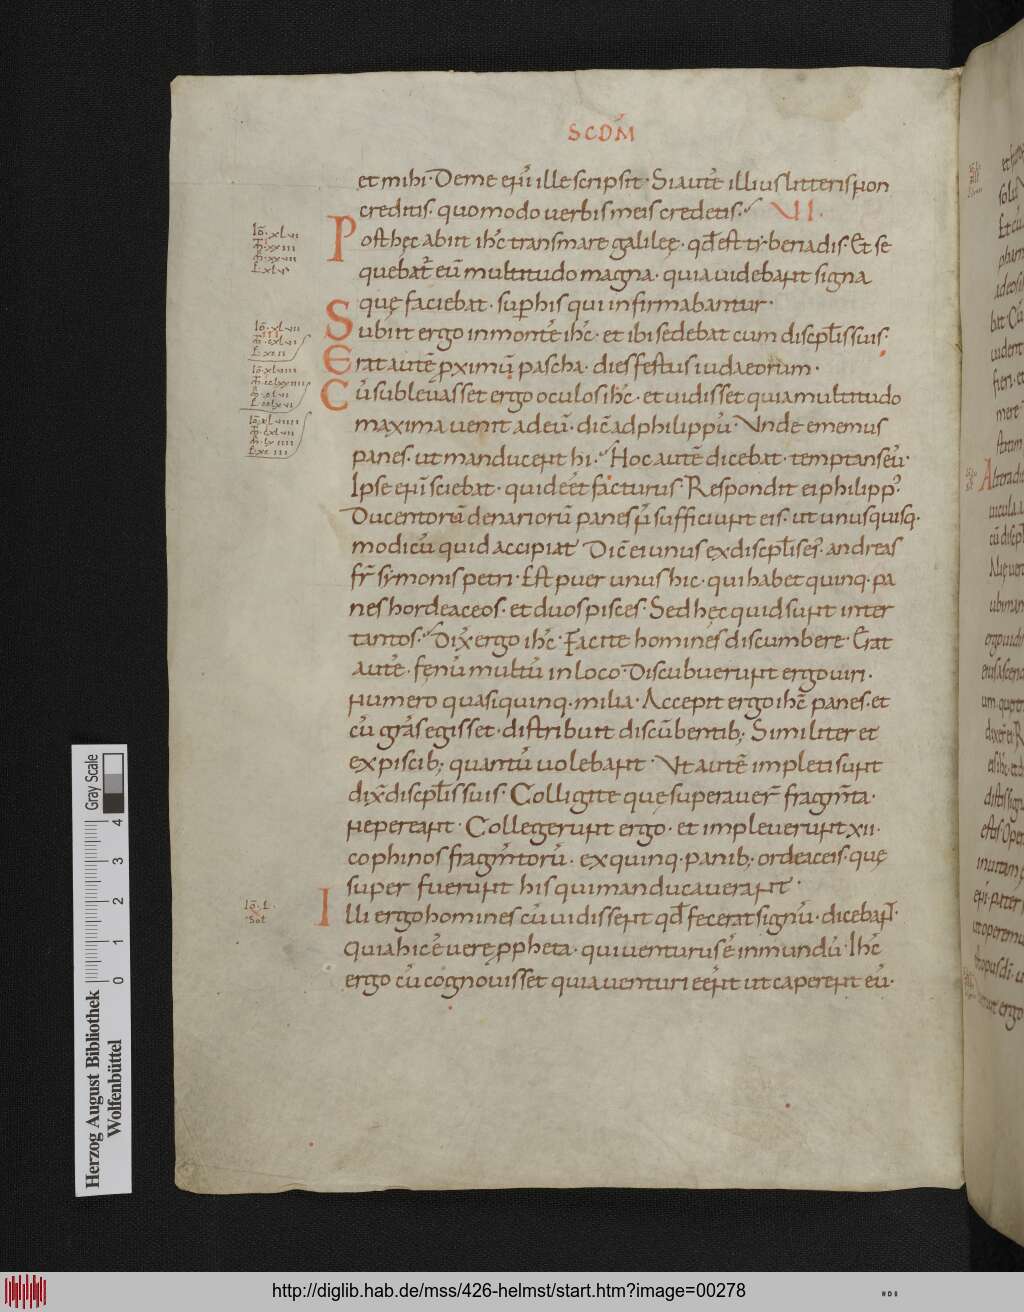 SCDM̄
et mihi· De me enī ille scripsit· Si autē illius litteris non
creditis· quomodo uerbis meis credetis·
VI·
Post hęc abiit ihc̄ trans mare galileę· qđ est tyberiadis· Et se
quebat̄ eū multitudo magna· quia uidebant signa
quę faciebat· sup his qui infirmabantur·
Subiit ergo in montē ihc̄· et ibi sedebat cum discipłis suis·
Erat autē pximū pascha· dies festus iudaeorum·
Cū subleuasset ergo oculos ihc̄· et uidisset quia multitudo
maxima uenit ad eū· dic̄ ad philippū· Vnde ememus
panes· ut manducent hi· Hoc autē dicebat· temptans eū·
Ipse enī sciebat· quid eēt facturus· Respondit ei philipp̾·
Ducentorū denariorū panes ñ sufficiunt eis· ut unusquisq·
modicū quid accipiat· Dic̄ ei unus ex discipłis ei̾· andreas
fr̄ symonis petri· Est puer unus hic· qui habet quinq· pa
nes hordeaceos· et duos pisces· Sed hęc quid sunt inter
tantos· Dix̄ ergo ihc̄· Facite homines discumbere· Erat
autē· fenū multū in loco· Discubuerunt ergo uiri·
numero quasi quinq· milia· Accepit ergo ihc̄ panes· et
cū gr̄as egisset· distribuit discūbentib; Similiter et
ex piscib; quantū uolebant· Vt autē impleti sunt
dix̄ discipłis suis· Colligite quę superauer̄ fragm̄ta·
ne pereant· Collegerunt ergo· et impleuerunt xii·
cophinos fragm̄torū· ex quinq· panib; ordeaceis· quę
super fuerunt his qui manducauerant·
Illi ergo homines cū uidissent qđ fecerat signū· dicebant·
quia hic ē uere ppheta· qui uenturus ē in mundū· Ihc̄
ergo cū cognouisset quia uenturi eēnt ut caperent eū·
Gray Scale
4
3
2
1
0
Herzog August Bibliothek
Wolfenbüttel
http://diglib.hab.de/mss/426-helmst/start.htm?image=00278